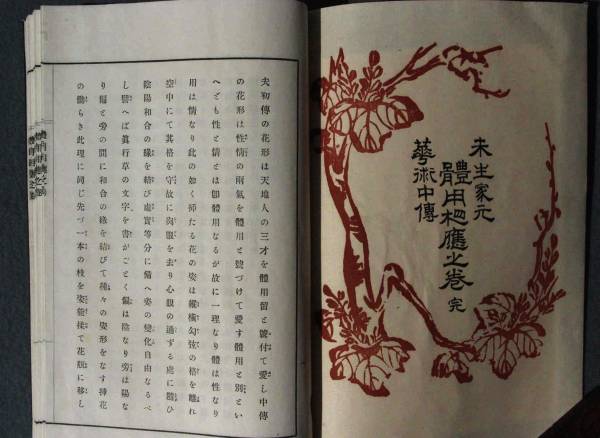 未生家元
體用相應之卷 完
藝術中傳
夫初傳の花形は天地人の三才を體用留と號付て愛し中傳
の花形は性情の兩氣を體用と號づけて愛す體用と別とい
へども性と情とは卽體用なるが故に一理なり體は性なり
用は情なり此の如く挿たる花の姿は縱橫勾弦の格を離れ
空中にて其格を守故に肉眼を去り心眼の通ずる處に隨ひ
陰陽和合の緣を結び虛實等分に備へ姿の變化自由なるべ
し譬へば眞行草の文字を書がごとく偏は陰なり旁は陽な
り偏と旁の間に和合の緣を結びて種々の姿形をなす挿花
の働らき此理に同じ先づ一本の枝を姿能揉て花瓶に移し